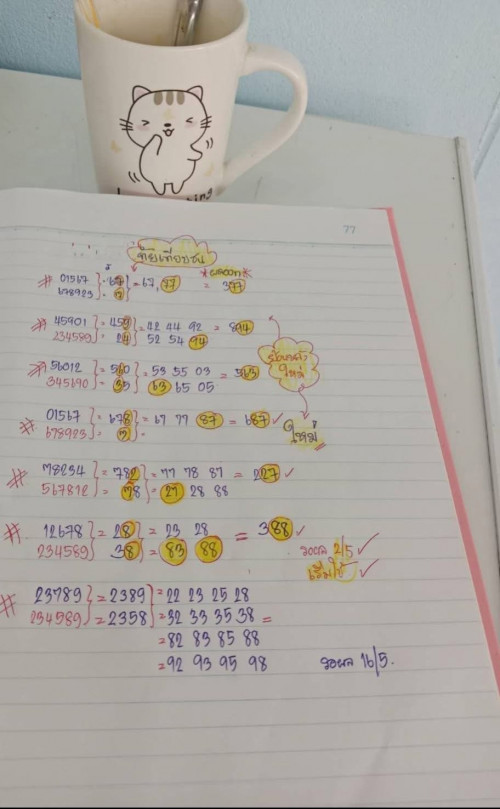 77
ท้ายเทียบชน
# 01567 } = 67 } = 67, 77 = 377
678923 } = 7
*ผลออก*
# 45901 } = 459 } = 42 44 92 = 894
234589 } = 24 } 52 54 94
# 56012 } = 560 } = 53 55 03 = 563
345690 } = 35 } 63 65 05
# 01567 } = 678 } = 67 77 87 = 687 ✓
678923 } = 7 } =
ใหม่
# 78234 } = 782 } = 77 78 87 = 227 ✓
567812 } = 78 } = 27 28 88
# 12678 } = 28 } = 23 28 = 388 ✓
234589 } 38 } = 83 88
รอผล 2/5 ✓
เริ่มใช้ ✓
# 23789 } = 2389 } = 22 23 25 28
234589 } = 2358 } = 32 33 35 38 =
= 82 83 85 88
= 92 93 95 98 รอผล 16/5.